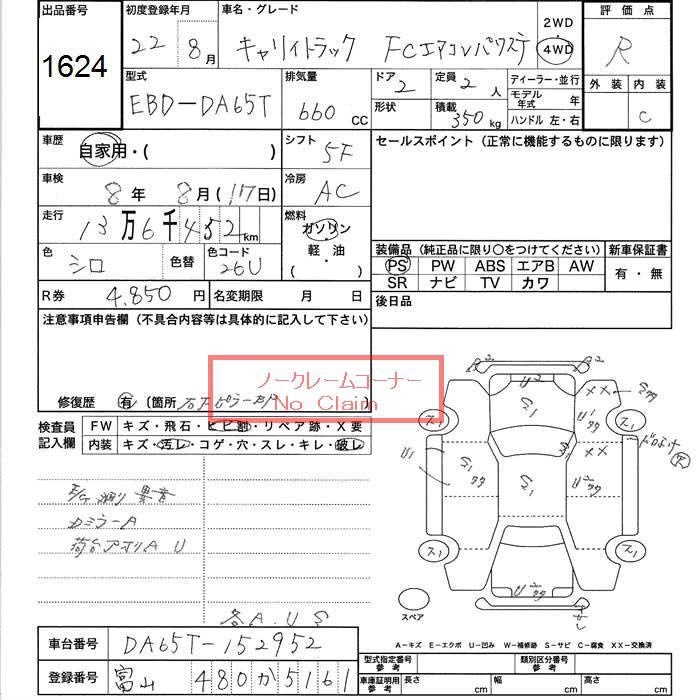 出品番号 初度登録年月 車名・グレード 評価点
1624 22年 8月 キャリイトラック FCエアコンパワステ 2WD 4WD R
型式 排気量 ドア 定員 ディーラー・並行 外装 内装
EBD-DA65T 660 CC 2 2人 モデル年式 年 C
形状 積載 350kg ハンドル 左・右
車歴 自家用・( ) シフト 5F セールスポイント (正常に機能するものに限ります)
車検 8年 8月(17日) 冷房 AC
走行 13万6千452km 燃料 ガソリン
軽・油
( ・ )
色 シロ 色替 色コード 26U
装備品 (純正品に限り○をつけてください) 新車保証書
PS PW ABS エアB AW 有・無
SR ナビ TV カワ
R券 4,850円 名変期限 月 日 後日品
注意事項申告欄 (不具合内容等は具体的に記入して下さい)
ノークレームコーナー
No Claim
修復歴 有 (箇所 )
検査員記入欄 FW キズ・飛石・ヒビ割・リペア跡・X要
内装 キズ・汚レ・コゲ・穴・スレ・キレ・破レ
E/G 異音
カミラーA
荷台アオリA U
各A.U.S
スペア
A-キズ E-エクボ U-凹み W-補修跡 S-サビ C-腐食 XX-交換済
車台番号 DA65T-152952
型式指定番号 参考 類別区分番号 参考
登録番号 富山 480 か 5161
車庫証明用 参考 長さ cm 幅 cm 高さ cm